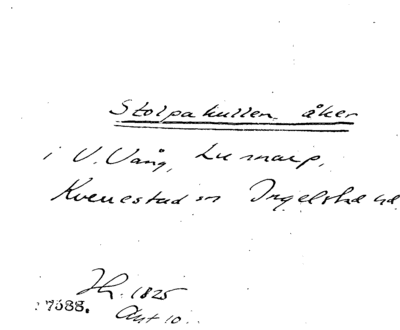 Stolpakullen, åker
i V. Vång, Lu marp,
Kvenestad sn Ingelsta hd
Ht. 1825
7588. Akt 10.